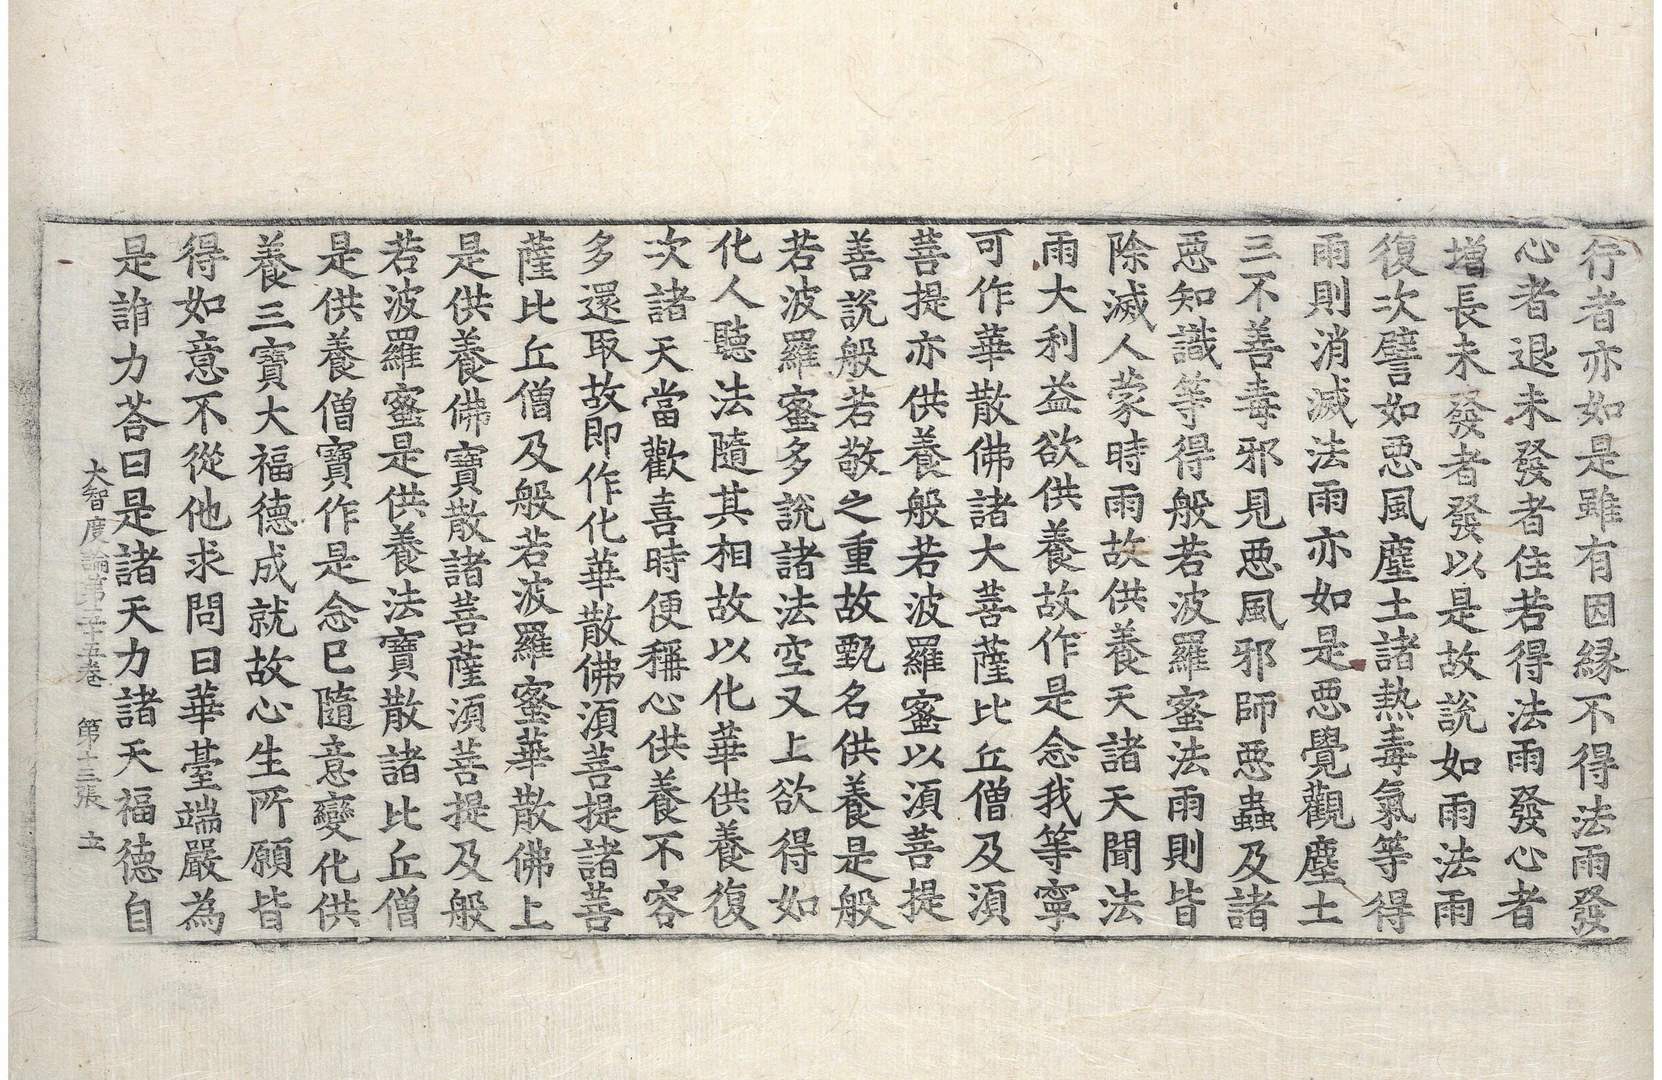 行者亦如是雖有因緣不得法雨發
心者退未發者住若得法雨發心者
增長未發者發以是故說如雨法雨
復次譬如惡風塵土諸熱毒氣等得
雨則消滅法雨亦如是惡覺觀塵土
三不善毒邪見惡風邪師惡蟲及諸
惡知識等得般若波羅蜜法雨則皆
除滅人蒙時雨故供養天諸天聞法
雨大利益欲供養故作是念我等寧
可作華散佛諸大菩薩比丘僧及須
菩提亦供養般若波羅蜜以須菩提
善說般若敬之重故甄名供養是般
若波羅蜜多說諸法空又上欲得如
化人聽法隨其相故以化華供養復
次諸天當歡喜時便稱心供養不容
多還取故即作化華散佛須菩提諸菩
薩比丘僧及般若波羅蜜華散佛上
是供養佛寶散諸菩薩須菩提及般
若波羅蜜是供養法寶散諸比丘僧
是供養僧寶作是念已隨意變化供
養三寶大福德成就故心生所願皆
得如意不從他求問曰華臺端嚴為
是誰力荅曰是諸天力諸天福德自
大智度論第五十五卷 第十三張 立